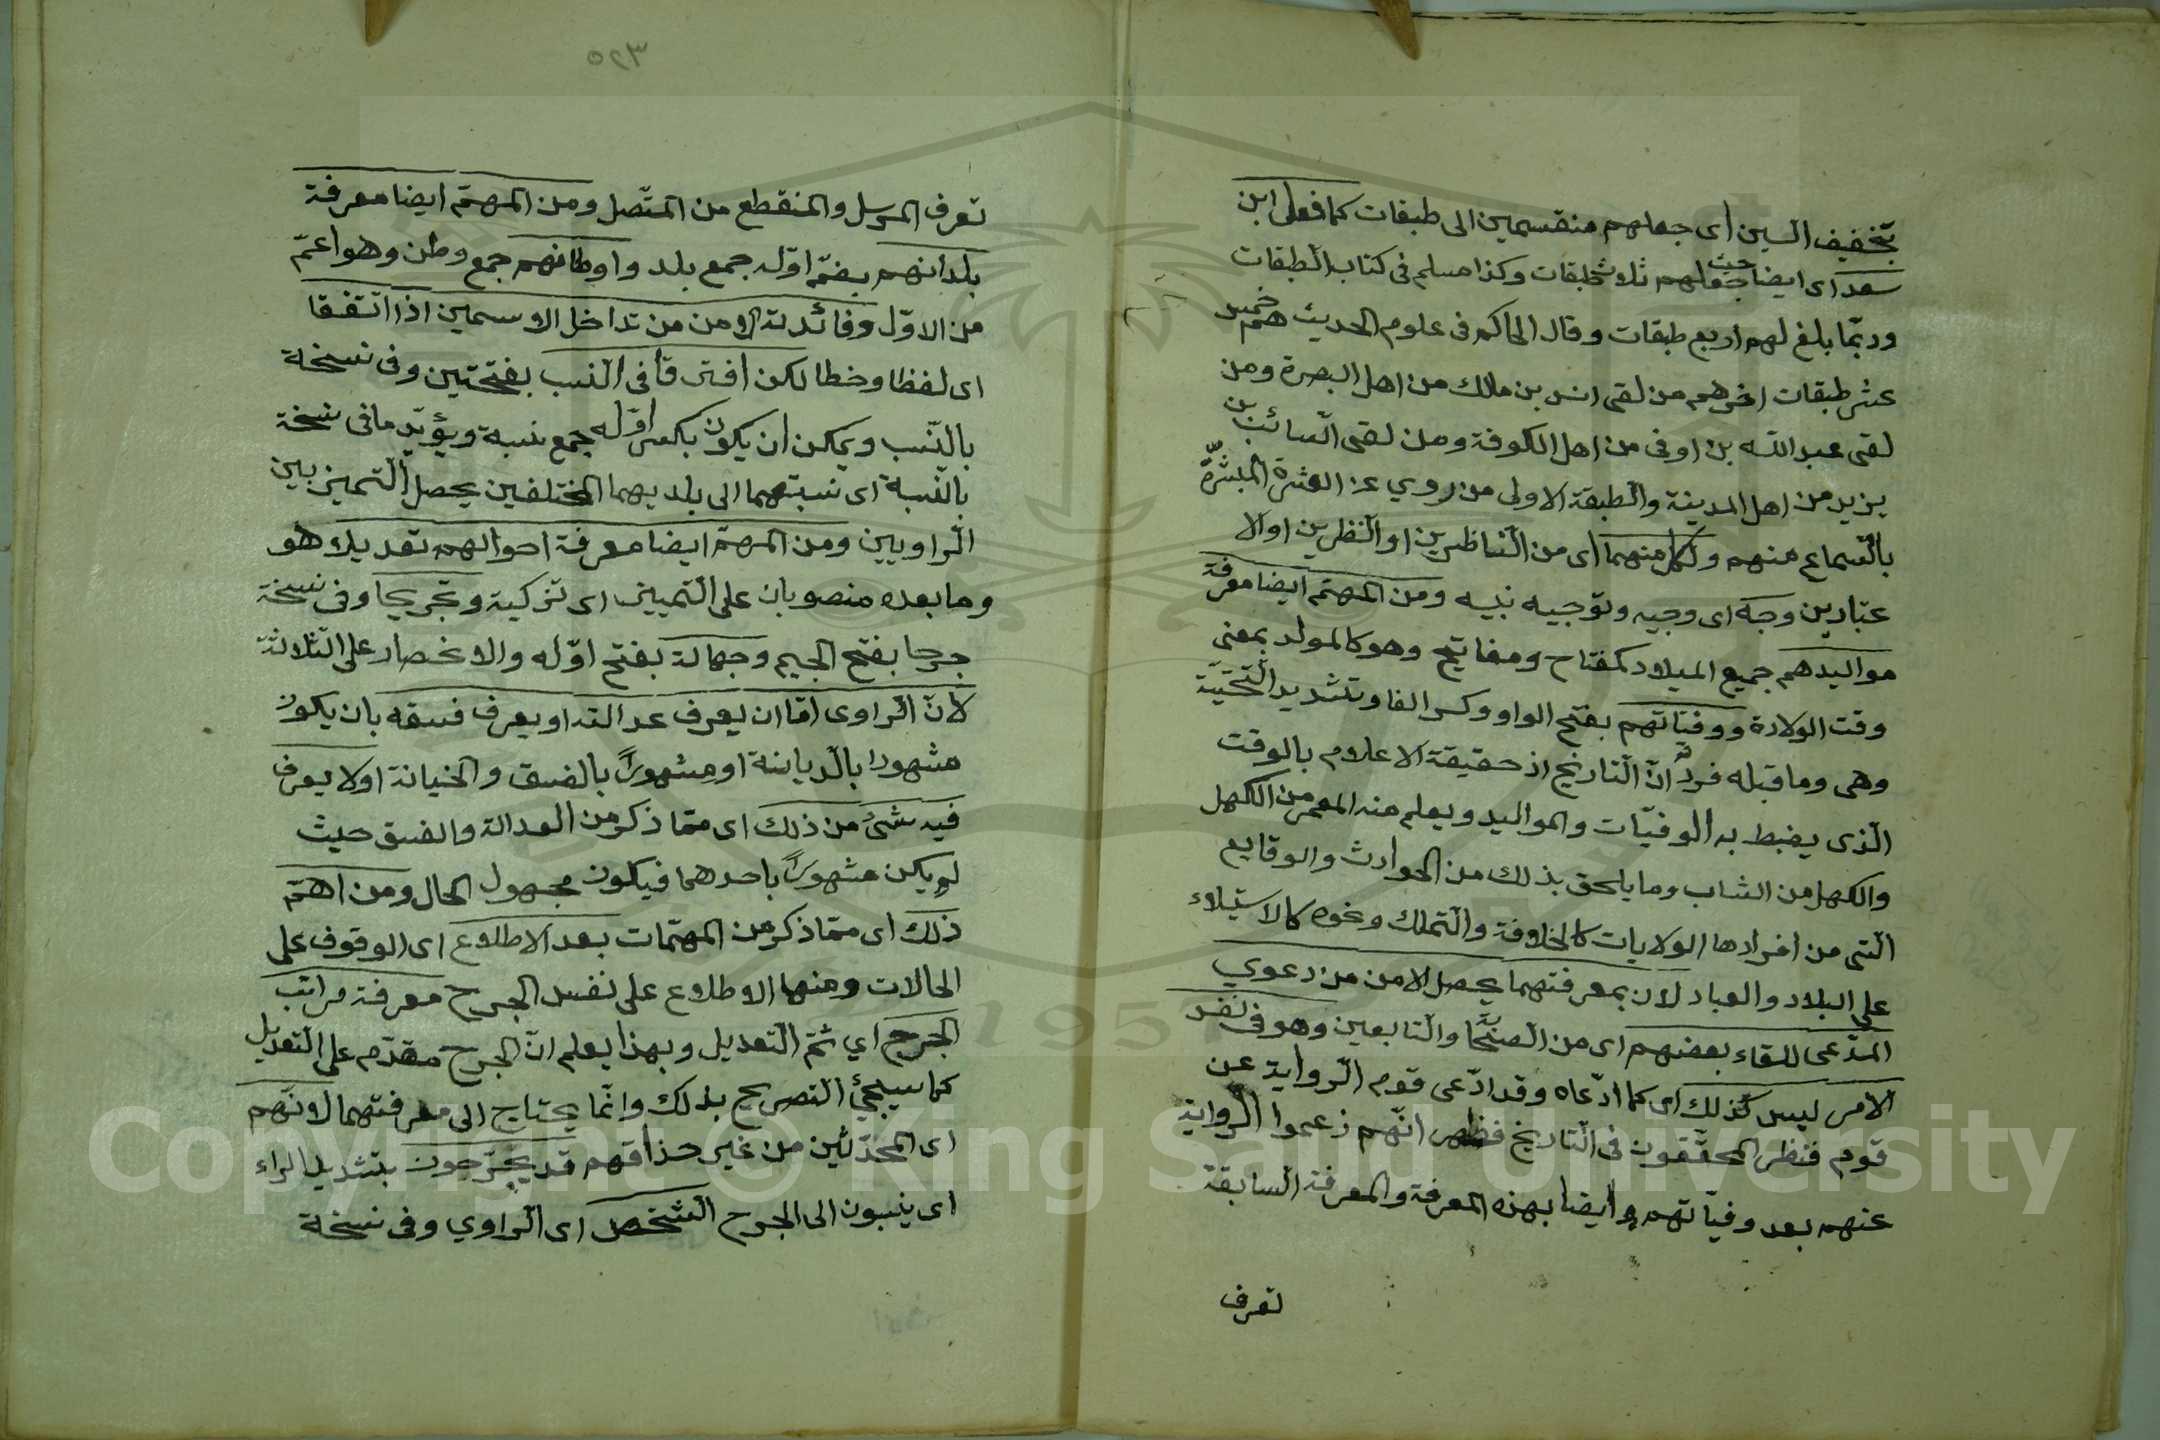 بتخفيف السين اى جعلهم منقسمين الى طبقات كما فعل ابن
سعد اى ايضا حيث جعلهم ثلاث طبقات وكذا مسلم فى كتاب الطبقات
وربّما بلغ لهم اربع طبقات وقال الحاكم فى علوم الحديث هم خمس
عشر طبقات اخرهم من لقى انس بن مالك من اهل البصرة ومن
لقى عبد اللّه بن اوفى من اهل الكوفة ومن لقى السّائب بن
يزيد من اهل المدينة والطبقة الاولى من روي عن العشرة المبشّرة
بالسّماع منهم ولكل منهما اى من النّاظرين او النّظرين اولا
عبّارين وجه اى وجيه وتوجيه نبيه ومن المهمّ ايضا معرفة
مواليدهم جميع الميلاد كمفتاح ومفاتيح وهو كالمولد بمعنى
وقت الولادة ووفياتهم بفتح الواو وكسر الفا وتشديد التّحتيّة
وهى وما قبله فرد انّ التّاريخ اذ حقيقة الاعلام بالوقت
الّذى يضبط به الوفيّات والمواليد ويعلم منه المعمر من الكهل
والكهل من الشاب وما يلحق بذلك من الحوادث والوقايع
الّتى من افرادها الولايات كالخلافة والتّملك ونحوه كالاستيلاء
على البلاد والعباد لان بمعرفتهما يحصل الامن من دعوي
المدّعى للقاء بعضهم اى من الصّحابة والتّابعين وهو فى نفس
الامر ليس كذلك اى كما ادّعاه وقد ادّعى قوم الرّواية عن
قوم فنظر المحقّقون فى التّاريخ فظهر انّهم زعموا الرّواية
عنهم بعد وفيّاتهم وايضا بهذه المعرفة والمعرفة السّابقة
تعرف
٥٢٣
تعرف المرسل والمنقطع من المتّصل ومن المهمّ ايضا معرفة
بلدانهم بضمّ اوّله جمع بلد واوطانهم جمع وطن وهو اعمّ
من الاوّل وفائدته الامن من تداخل الاسمين اذا اتّفقا
اى لفظا وخطا لكن افترقا فى النسب بفتحتين وفى نسخة
بالنّسب ويمكن ان يكون بكسر اوّله جمع نسبة ويؤيّد ما فى نسخة
بالنّسبة اى نسبتهما الى بلديهما المختلفين يحصل التّميز بين
الرّاويين ومن المهمّ ايضا معرفة احوالهم تعديلا هو
وما بعده منصوبان على التّمييز اى تزكية وتجريحا وفى نسخة
جرحا بفتح الجيم وجهالة بفتح اوّله والانحصار على الثّلاثة
لانّ الرّاوى امّا ان يعرف عدالته او يعرف فسقه بان يكون
مشهورا بالدّيانة او مشهورًا بالفسق والخيانة او لا يعرف
فيه شئ من ذلك اى ممّا ذكر من العدالة والفسق حيث
لم يكن مشهورًا باحدهما فيكون مجهول الحال ومن اهمّ
ذلك اى ممّا ذكر من المهمّات بعد الاطلاع اى الوقوف على
الحالات ومنها الاطلاع على نفس الجرح معرفة مراتب
الجرح اي ثمّ التّعديل وبهذا يعلم انّ الجرح مقدّم على التّعديل
كما سيجئ التصريح بذلك وانّما يحتاج الى معرفتهما لانّهم
اى المحدّثين من غير حذاقهم قد يجرّحون بتشديد الراء
اى ينسبون الى الجرح الشّخص اى الرّاوي وفى نسخة
1957
Copyright © King Saud University